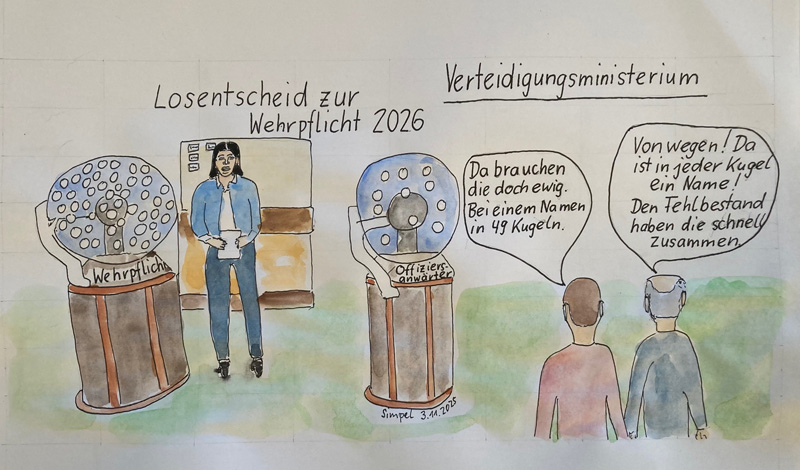 Verteidigungsministerium
Losentscheid zur
Wehrpflicht 2026
Da brauchen
die doch ewig.
Bei einem Namen
in 49 Kugeln.
Von wegen! Da
ist in jeder Kugel
ein Name!
Den Fehlbestand
haben die schnell
zusammen.
Wehrpflicht
Offiziers-
anwärter
Simpel 3.11.2025